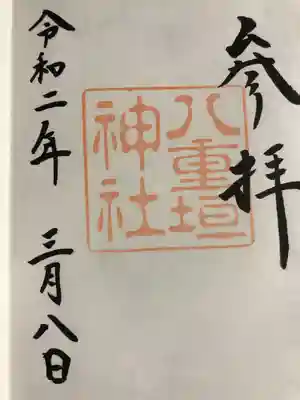 参拝
八重垣
神社
令和二年 三月八日